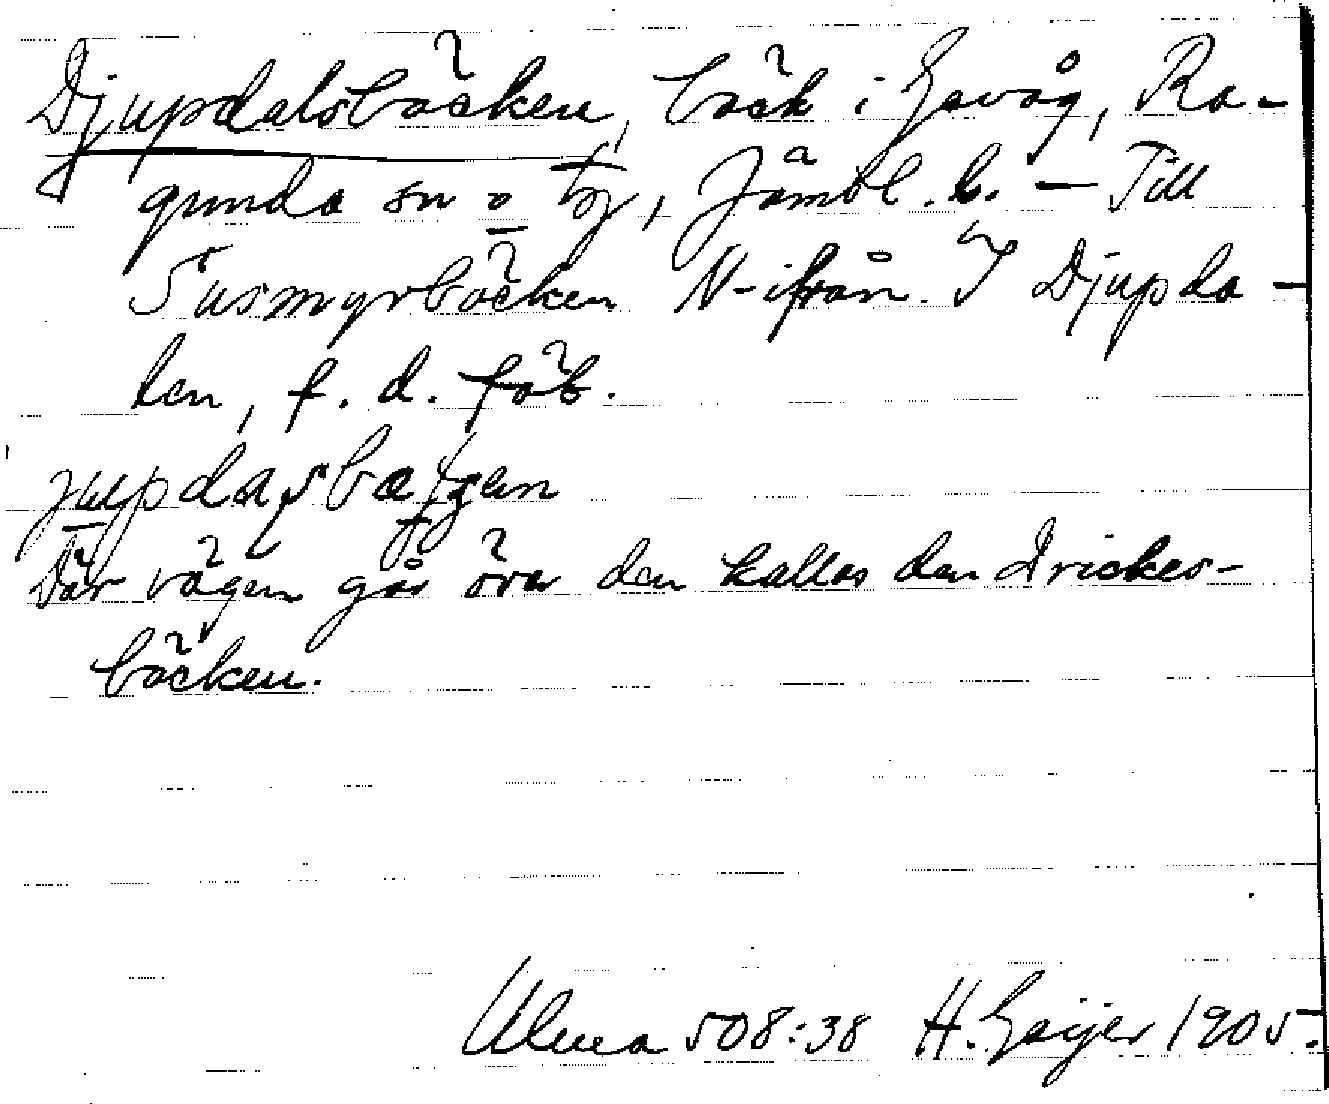 Djupdalsbäcken, bäck i Gevåg, Ra-
gunda sn o tg, Jämtl. l. — Till
Tusmyrbäcken N-ifrån. I Djupda-
len, f. d. fäb.
Där vägen går över den kallas den Drickes-
bäcken.
Ulma 508:38 H. Geijer 1905.